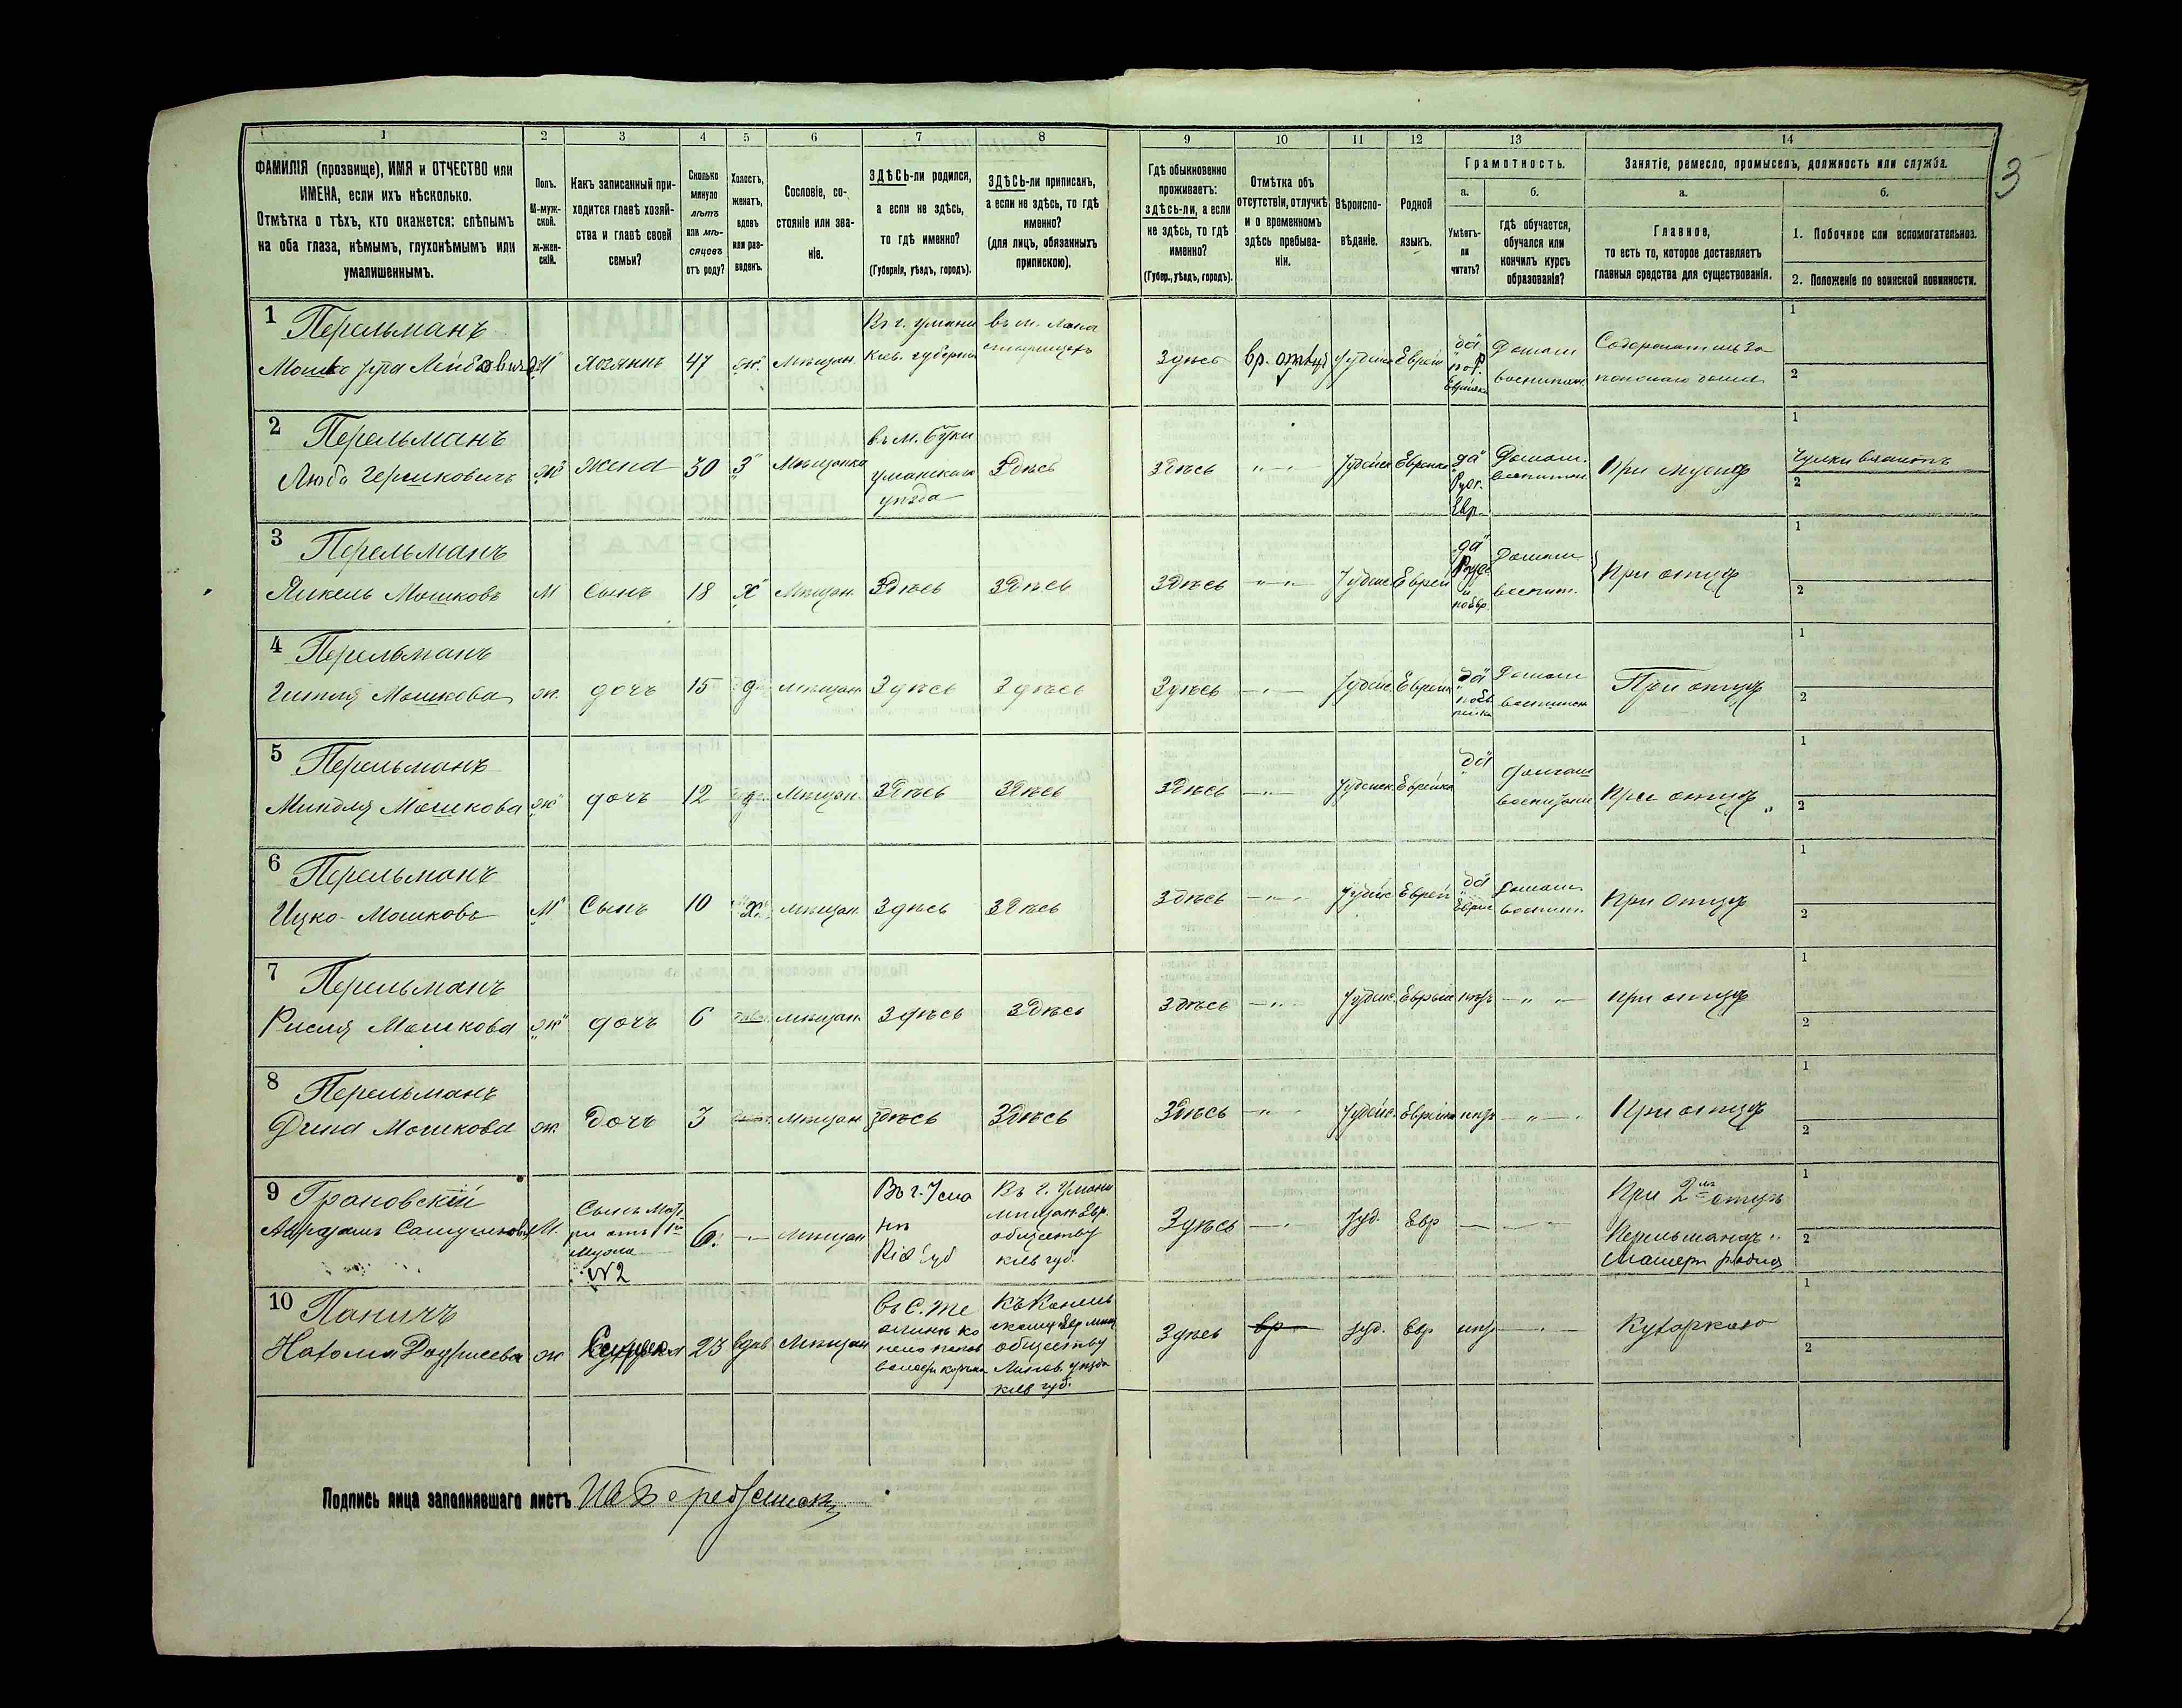 3
1 2 3 4 5 6 7 8 9 10 11 12 13 14
ФАМИЛІЯ (прозвище), ИМЯ и ОТЧЕСТВО или
ИМЕНА, если ихъ нѣсколько.
Отмѣтка о тѣхъ, кто окажется: слѣпымъ
на оба глаза, нѣмымъ, глухонѣмымъ или
умалишеннымъ.
Полъ.
М-муж-
ской.
Ж-жен-
скій.
Какъ записанный при-
ходится главѣ хозяй-
ства и главѣ своей
семьи?
Сколько
минуло
лѣтъ
или мѣ-
сяцевъ
отъ роду?
Холостъ,
женатъ,
вдовъ
или раз-
веденъ.
Сословіе, со-
стояніе или зва-
ніе.
ЗДѢСЬ-ли родился,
а если не здѣсь,
то гдѣ именно?
(Губернія, уѣздъ, городъ).
ЗДѢСЬ-ли приписанъ,
а если не здѣсь, то гдѣ
именно?
(для лицъ, обязанныхъ
припискою).
Гдѣ обыкновенно
проживаетъ:
здѣсь-ли, а если
не здѣсь, то гдѣ
именно?
(Губер., уѣздъ, городъ).
Отмѣтка объ
отсутствіи, отлучкѣ
и о временномъ
здѣсь пребыва-
ніи.
Вѣроиспо-
вѣданіе.
Родной
языкъ.
Грамотность.
а.
Умѣетъ-
ли
читать?
б.
гдѣ обучается,
обучался или
кончилъ курсъ
образованія?
Занятіе, ремесло, промыселъ, должность или служба.
а.
Главное,
то есть то, которое доставляетъ
главныя средства для существованія.
б.
1. Побочное или вспомогательное.
2. Положеніе по воинской повинности.
1 Перельманъ
Мошко Лейбовичъ М Хозяинъ 47 ж. Мѣщан. Въ г. Умани Кіев. губерніи здѣсь вр. отлуч Іудейс Еврей да Домаш воспитан. 1 2
2 Перельманъ
Люба Гершковичъ ж жена 30 З Мѣщанка въ м. Буки уманскаго уѣзда здѣсь здѣсь Іудейск Еврейка да Руст. Евр. Домаш. воспитан. При мужѣ 1 Чулки вяжетъ 2
3 Перельманъ
Янкель Мошковъ М Сынъ 18 Х Мѣщан. здѣсь здѣсь здѣсь Іудейс Еврей да Русс и по Евр. Домаш воспит. При отцѣ 1 2
4 Перельманъ
Гитля Мошкова ж. дочь 15 д Мѣщан. здѣсь здѣсь здѣсь Іудейс. Еврейка да Домаш воспитан При отцѣ 1 2
5 Перельманъ
Миндля Мошкова ж дочь 12 д Мѣщан. здѣсь здѣсь здѣсь Іудейск Еврейка да домаш воспитан При отцѣ 1 2
6 Перельманъ
Ицко Мошковъ М Сынъ 10 Х. мѣщан. здѣсь здѣсь здѣсь Іудейс Еврей да Домаш воспит. При отцѣ 1 2
7 Перельманъ
Рисля Мошкова ж дочь 6 мѣщан. здѣсь здѣсь здѣсь Іудейс. Еврейк нѣтъ при отцѣ 1 2
8 Перельманъ
Дина Мошкова ж. дочь 3 мѣщан здѣсь здѣсь здѣсь Іудейс. Еврейка нѣтъ При отцѣ 1 2
9 Грановскій
Абрамъ М. Сынъ Мате ри отъ 1го Мужа №2 6. Мѣщан Въ г. Ума нѣ Кіев губ Въ г. Умани мѣщан Евр. обществу кіев губ. здѣсь Іуд. Евр При 2мъ отцѣ Перельманѣ 1 2
10 Паничъ
ж 23 вдов Мѣщан обществу Липов. уѣзда кіев губ. здѣсь вр Іуд. Евр нѣтъ Кухаркою 1 2
Подпись лица заполнявшаго листъ